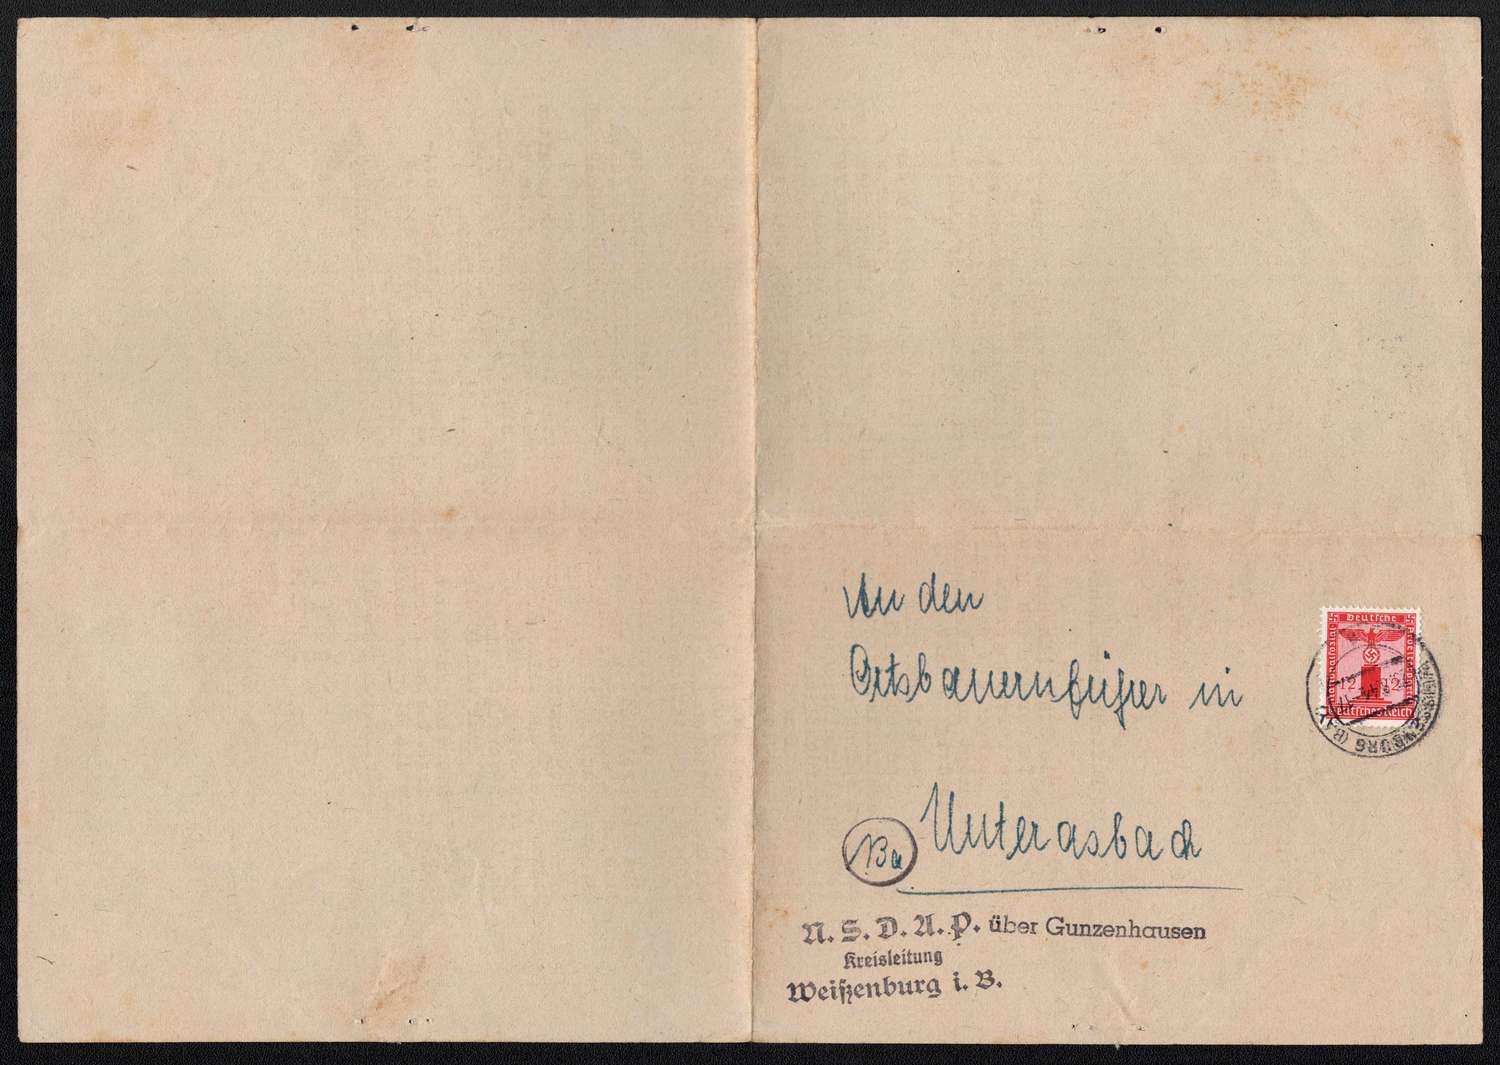 An den
Ortsbauernführer in
Unterasbach
Ba
N. S. D. A. P. über Gunzenhausen
Kreisleitung
Weißenburg i. B.
Deutsche
Nationalsozial
12 12
Deutsches Reich
WEISSENBURG (BAY)